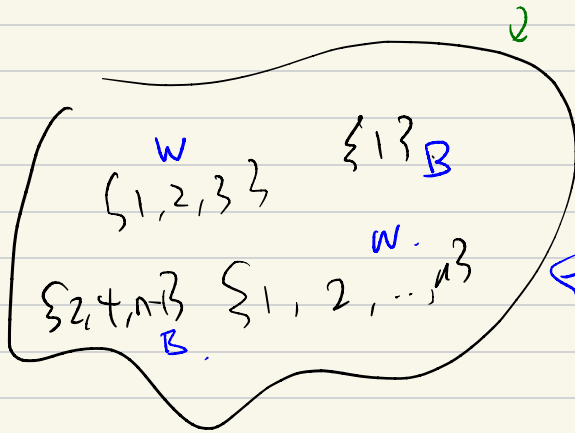 W
{1,2,3} {1} B
W.
{2,4,n-1} {1, 2, ..., n}
B.